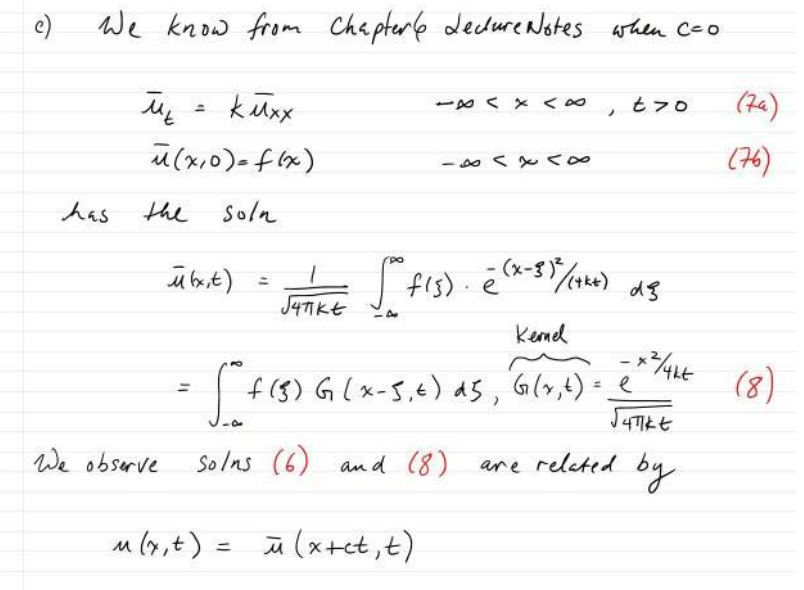 c) We know from Chapter 6 Lecture Notes when c=0
ū_t = k ū_xx   -∞ < x < ∞ , t > 0   (7a)
ū(x,0) = f(x)   -∞ < x < ∞   (7b)
has the soln
ū(x,t) = 1/√(4πkt) ∫_{-∞}^{∞} f(ξ) · e^{-(x-ξ)²/(4kt)} dξ
Kernel
= ∫_{-∞}^{∞} f(ξ) G(x-ξ,t) dξ , G(x,t) = e^{-x²/4kt} / √(4πkt)   (8)
We observe solns (6) and (8) are related by
u(x,t) = ū(x+ct,t)